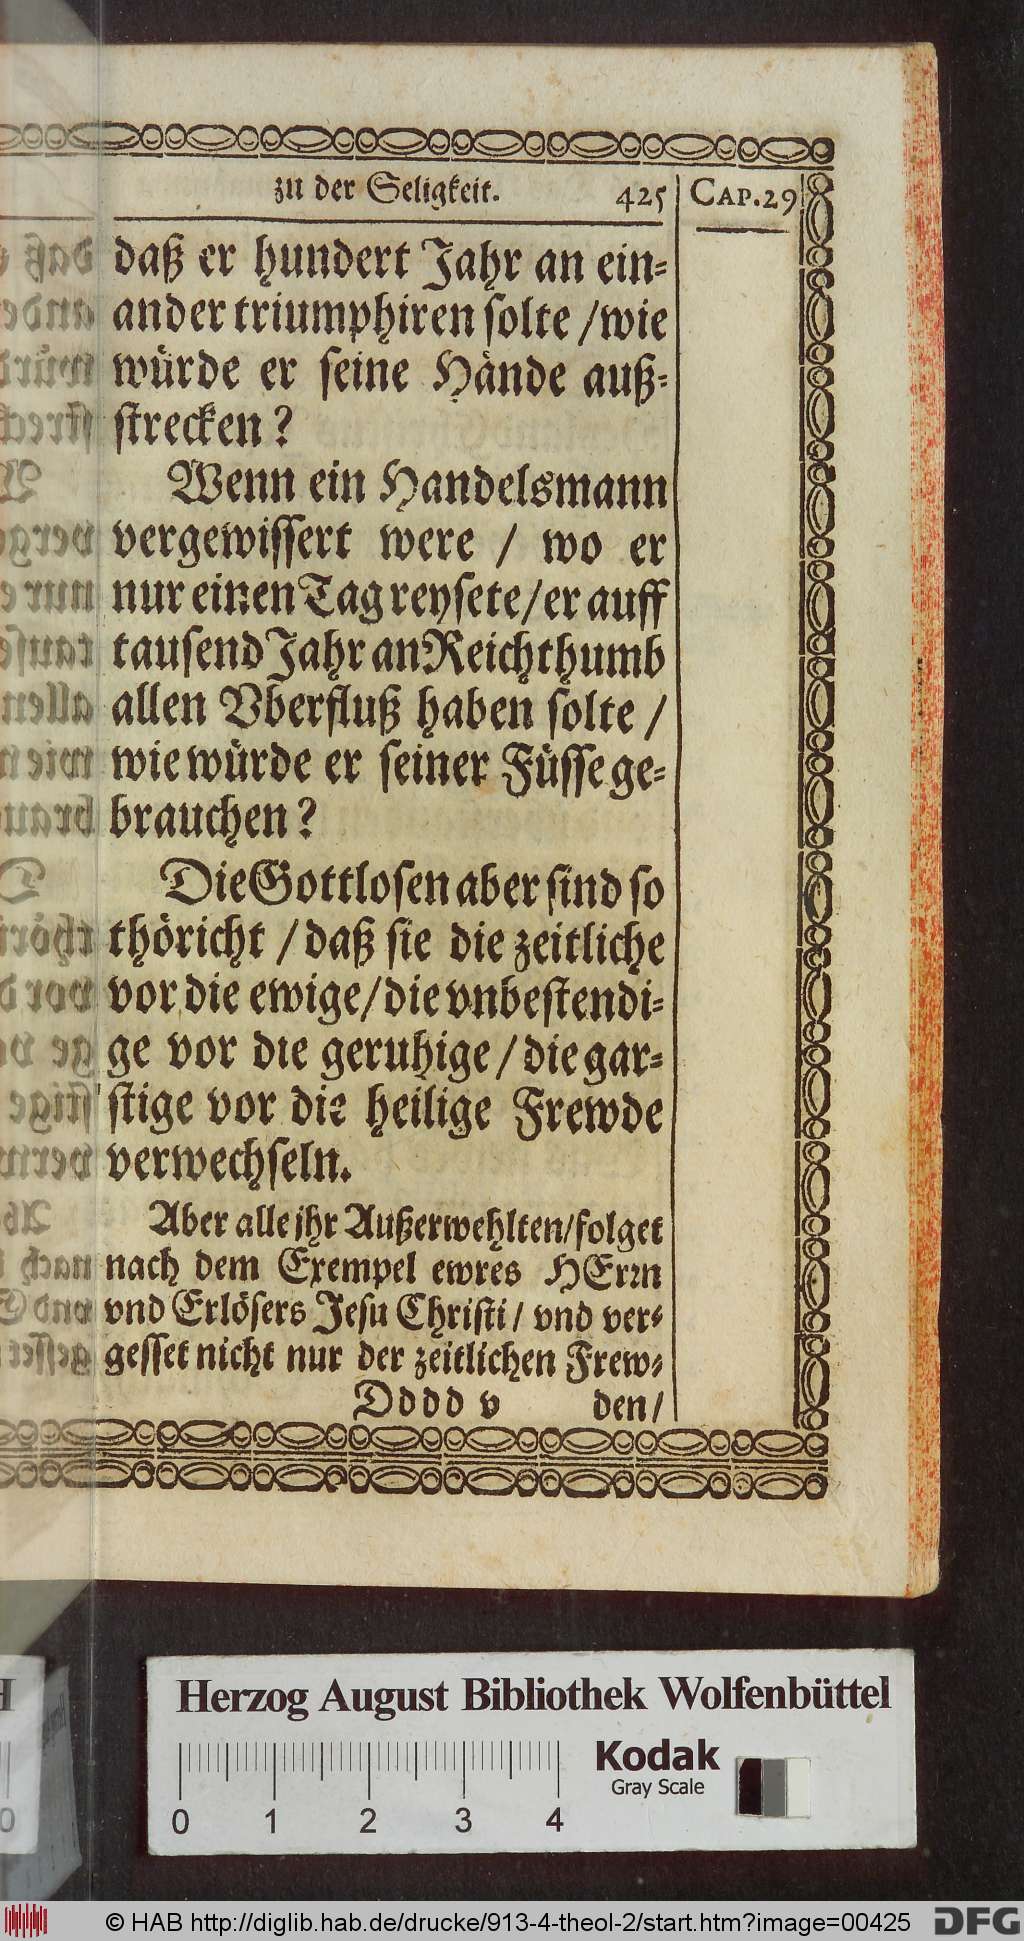 zu der Seligkeit. 425 CAP.29
daß er hundert Jahr an ein⸗
ander triumphiren solte / wie
würde er seine Hände auß⸗
strecken?
Wenn ein Handelsmann
vergewissert were / wo er
nur einen Tag reysete / er auff
tausend Jahr an Reichthumb
allen Vberfluß haben solte /
wie würde er seiner Füsse ge⸗
brauchen?
Die Gottlosen aber sind so
thöricht / daß sie die zeitliche
vor die ewige / die vnbestendi⸗
ge vor die geruhige / die gar⸗
stige vor die heilige Frewde
verwechseln.
Aber alle jhr Außerwehlten / folget
nach dem Exempel ewres HErrn
vnd Erlösers Jesu Christi / vnd ver⸗
gesset nicht nur der zeitlichen Frew⸗
Dddd v den /
Herzog August Bibliothek Wolfenbüttel
Kodak
Gray Scale
0 1 2 3 4
© HAB http://diglib.hab.de/drucke/913-4-theol-2/start.htm?image=00425 DFG